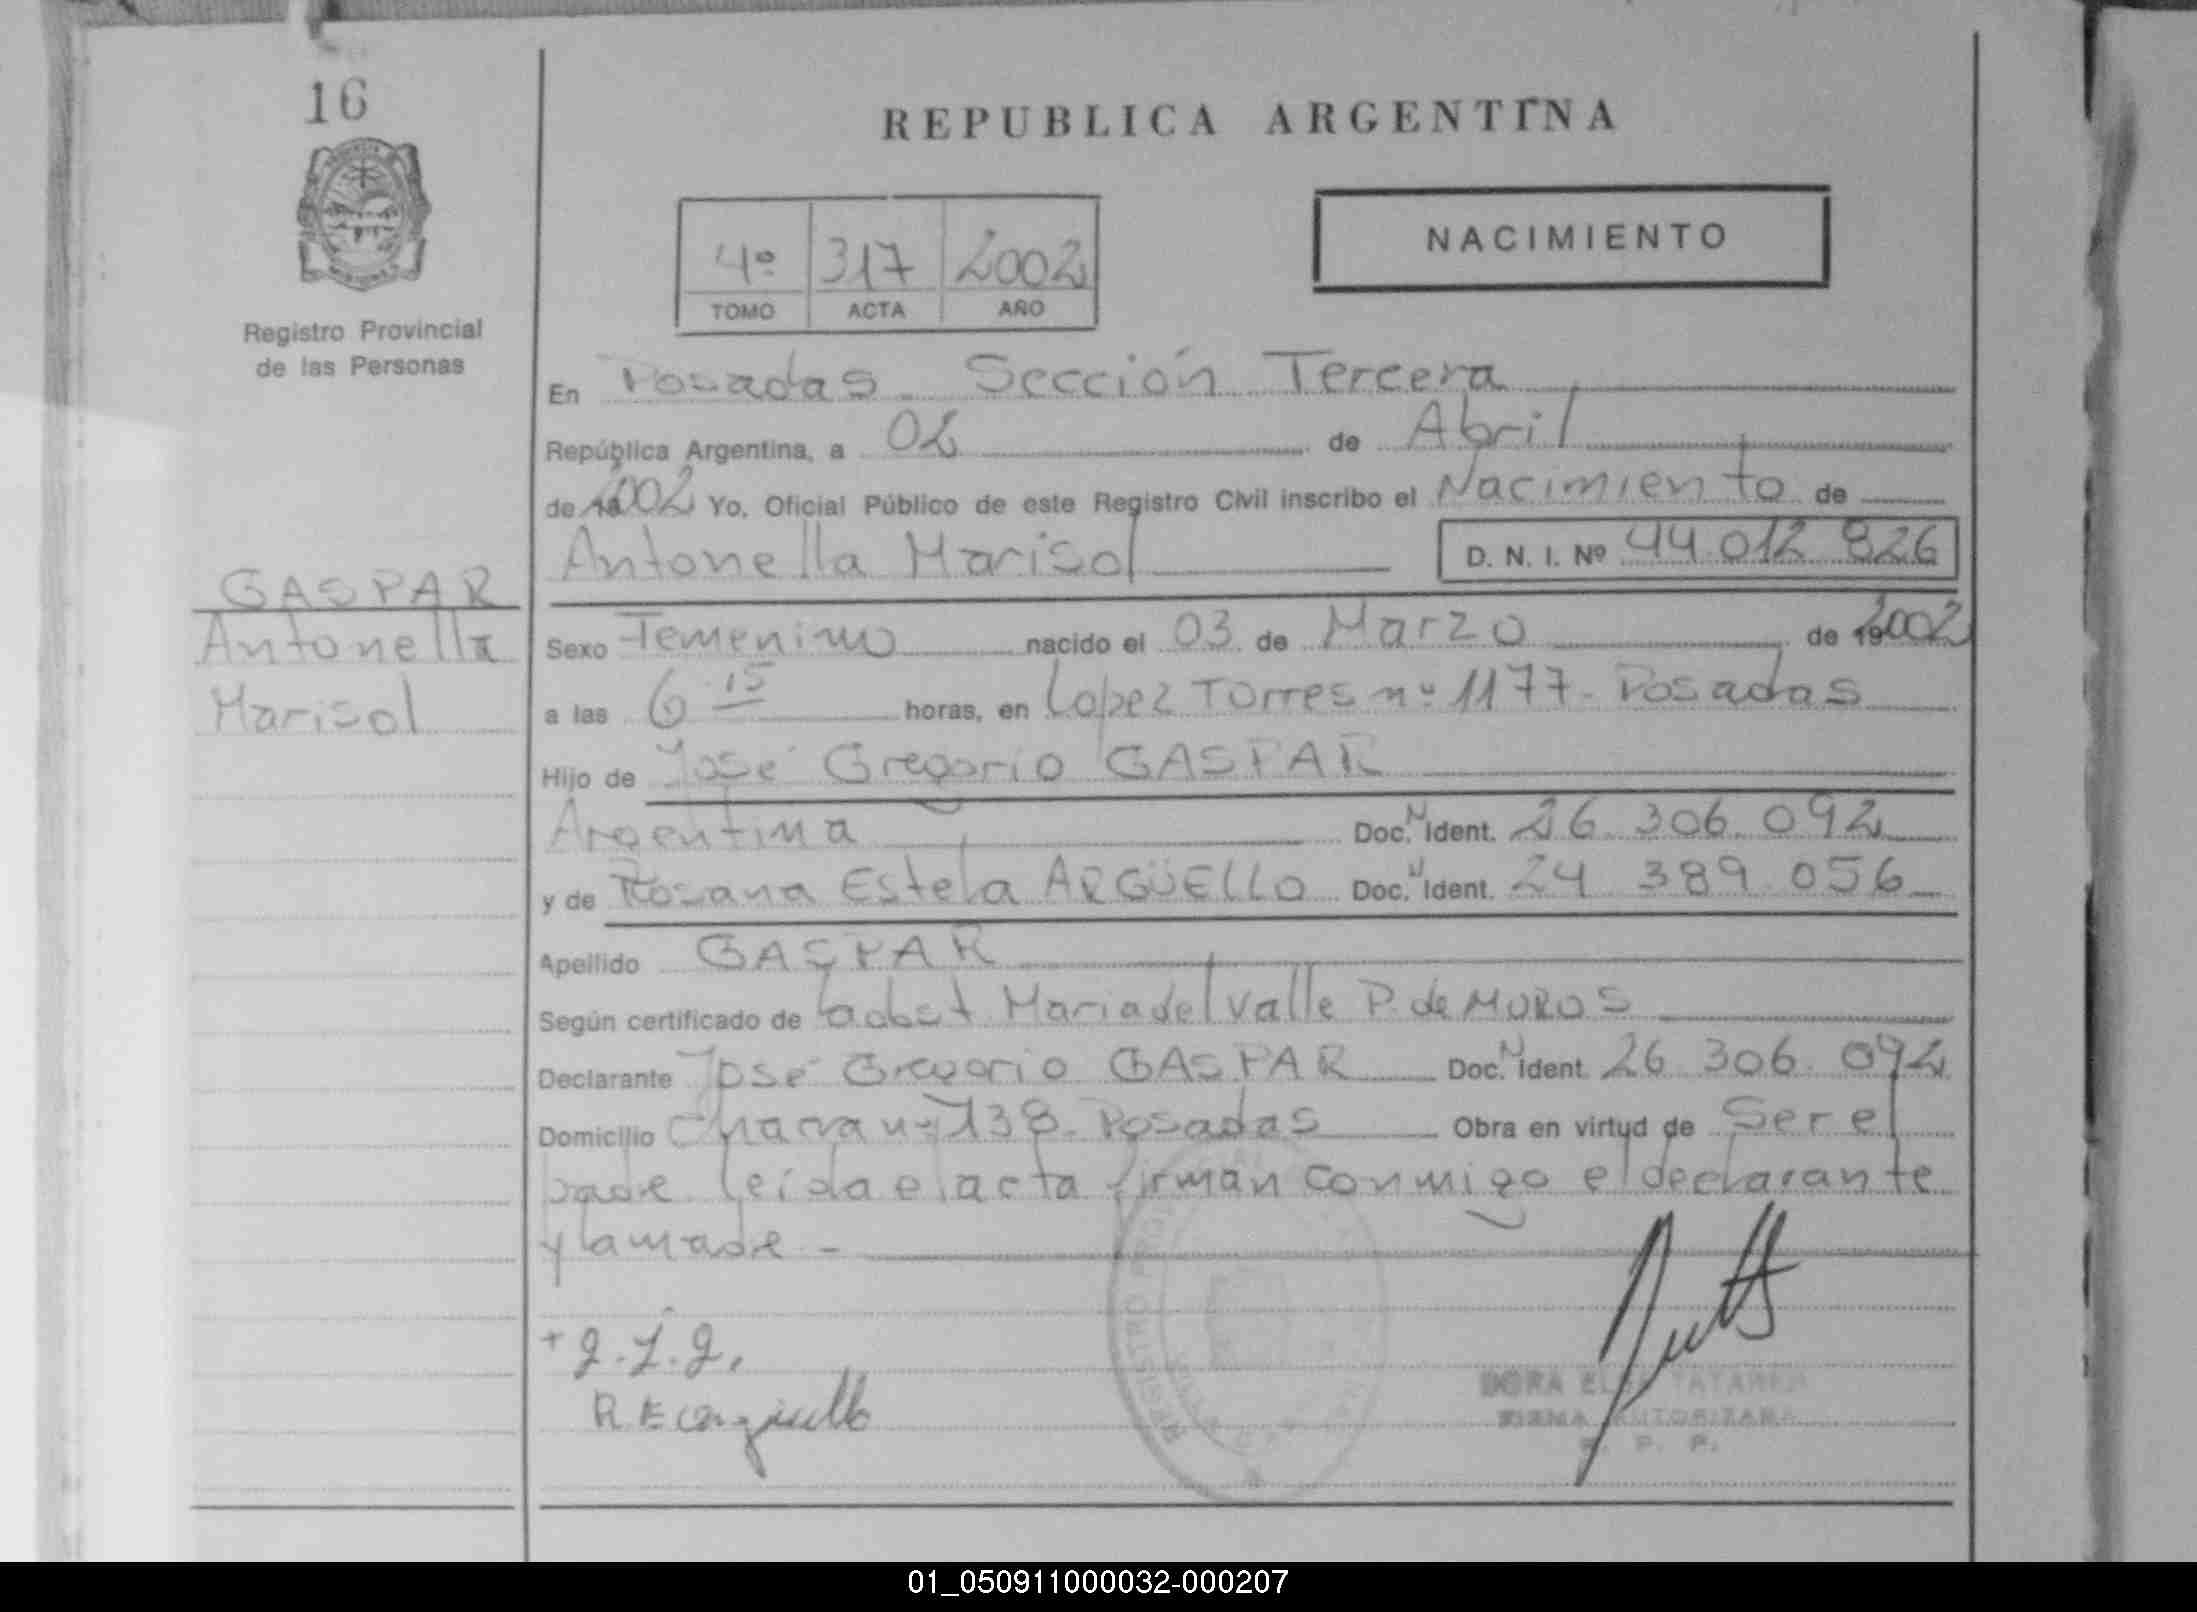 16
REPUBLICA ARGENTINA
NACIMIENTO
4º 317 2002
TOMO ACTA AÑO
Registro Provincial
de las Personas
En Posadas - Sección Tercera
República Argentina, a 02 de Abril
de 2002 Yo, Oficial Público de este Registro Civil inscribo el Nacimiento de
Antonella Marisol D. N. I. Nº 44.012 826
GASPAR
Antonella
Marisol
Sexo Femenino nacido el 03 de Marzo de 2002
a las 6 15 horas, en Lopez Torres nº 1177 - Posadas
Hijo de José Gregorio GASPAR
Argentina Doc. N Ident. 26.306.092
y de Rosana Estela ARGÜELLO Doc. N Ident. 24 389.056
Apellido GASPAR
Según certificado de Maria del Valle P. de MUROS
Declarante José Gregorio GASPAR Doc. N Ident. 26.306.092
Domicilio 138 - Posadas Obra en virtud de Ser el
padre leída el acta firman conmigo el declarante
y la madre -
DORA
FIRMA AUTORIZADA
R. P. P.
01_050911000032-000207